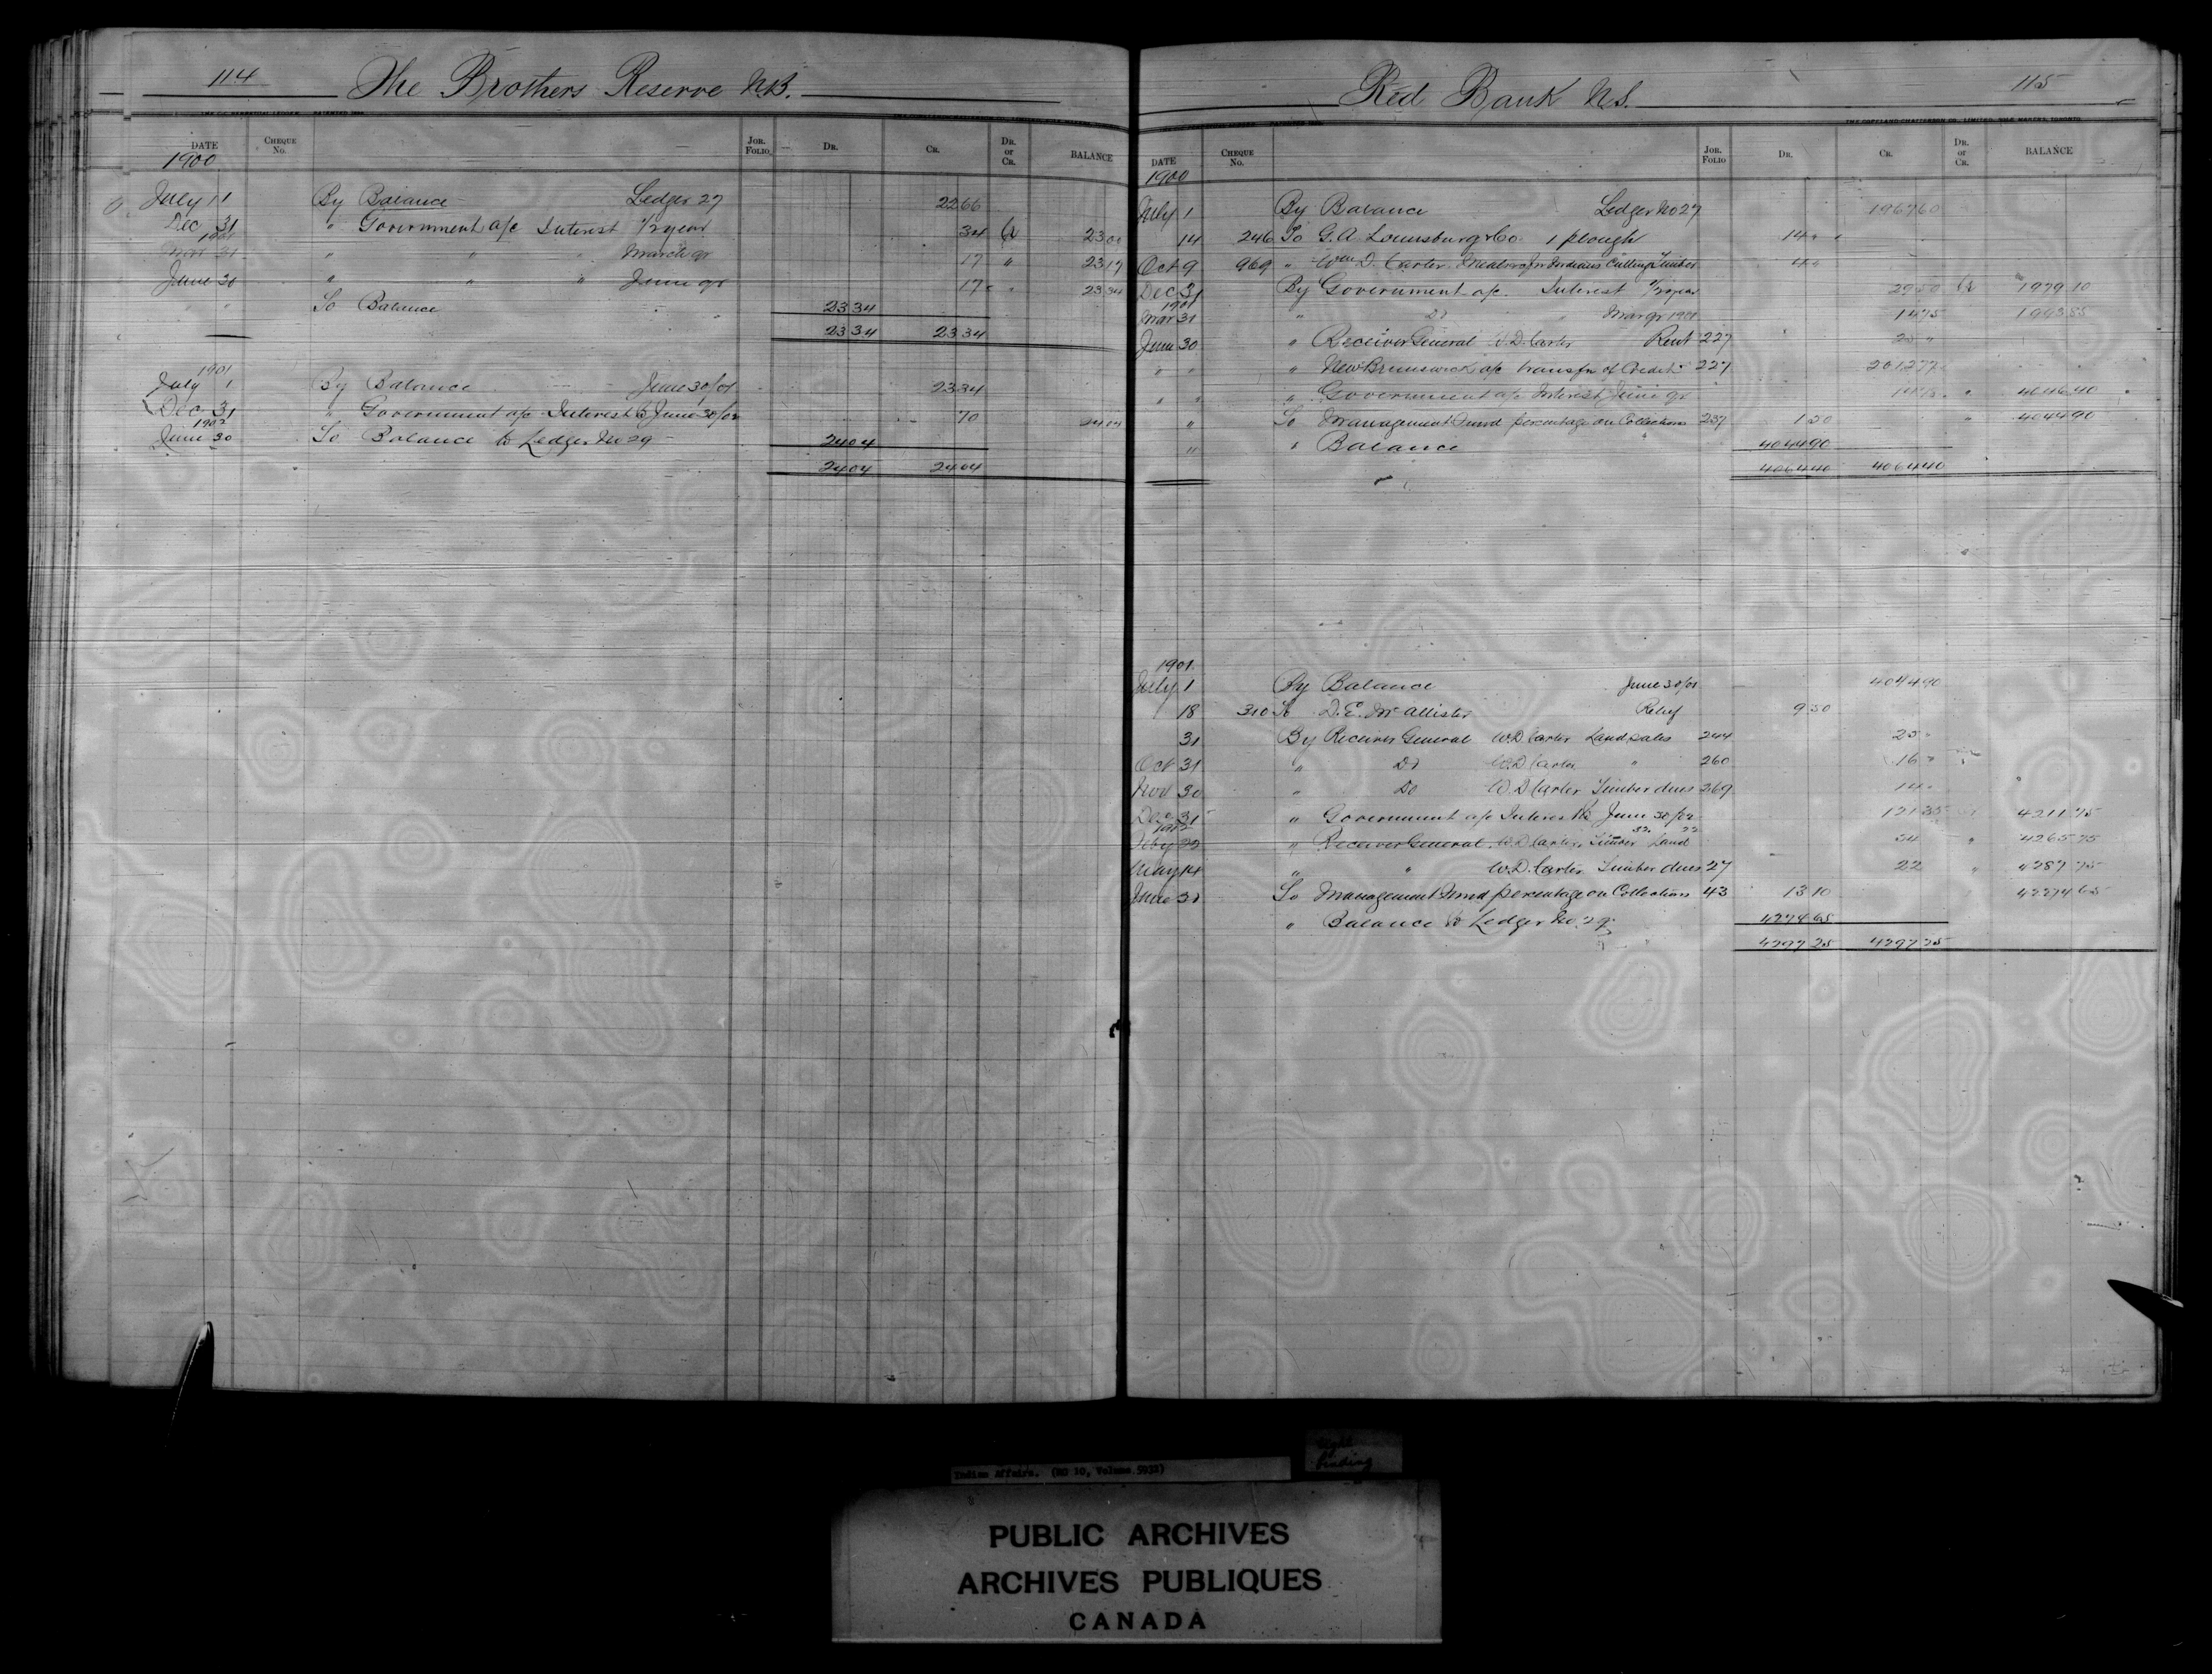 114 The Brothers Reserve N.B.
DATE CHEQUE No. JOR. FOLIO DR. CR. DR. or CR. BALANCE
1900
July 1 By Balance Ledger 27 22 66
Dec 31 " Government a/c Interest 1/2 year 34 Cr 23 00
1901
Mar 31 " " " March qr 17 " 23 17
June 30 " " " June qr 17 " 23 34
" " To Balance 23 34
23 34 23 34
1901
July 1 By Balance June 30/01 23 34
Dec 31 " Government a/c Interest to June 30/02 70 24 04
1902
June 30 To Balance to Ledger No 29 24 04
24 04 24 04
Red Bank N.S. 115
THE COPELAND-CHATTERSON CO., LIMITED, SOLE MAKERS, TORONTO
DATE CHEQUE No. JOR. FOLIO DR. CR. DR. or CR. BALANCE
1900
July 1 By Balance Ledger No 27 1967 60
14 246 To G.A. Lounsbury & Co 1 plough 14 "
Oct 9 969 " Wm D. Carter Indians Cutting Timber 4 "
Dec 31 By Government a/c Interest 1/2 year 29 50 Cr 1979 10
1901
Mar 31 " Do " Mar qr 1901 14 75 1993 85
June 30 " Receiver General W.D. Carter Rent 227 25 "
" " " New Brunswick a/c transfer of Credit 227 2012 77
" " " Government a/c Interest June qr " 4046 40
" To Management Fund percentage on Collections 237 1 50 " 4044 90
" " Balance 4044 90
4064 40 4064 40
1901
July 1 By Balance June 30/01 4044 90
18 310 To D.E. McAllister Relief 9 50
31 By Receiver General W.D. Carter Land sales 244 25 "
Oct 31 " Do W.D. Carter " 260 16 "
Nov 30 " Do W.D. Carter Timber dues 269 14 "
Dec 31 " Government a/c Interest to June 30/02 121 35 4211 75
1902
Feby 22 " Receiver General W.D. Carter Timber 32 Land 22 54 " 4265 75
May 14 " " W.D. Carter Timber dues 27 22 " 4287 75
June 30 To Management Fund percentage on Collections 43 13 10 4274 65
" Balance to Ledger No. 29 4274 65
4297 25 4297 25
Indian Affairs. (RG 10, Volume 5932)
Tight Binding
PUBLIC ARCHIVES
ARCHIVES PUBLIQUES
CANADA